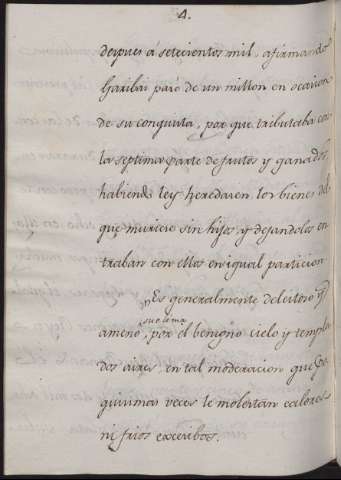 4.
despues á setecientos mil, afirmando
Garibai pasó de un millon en ocasion
de su conquista, por que tributaba con
la septima parte de frutos y ganados,
habiendo ley heredasen los bienes del
que muriese sin hijos y dejandolos en
traban con ellos en igual particion.
Es generalmente deleitoso y
ameno, por el benigno cielo y templa
dos aires, en tal moderacion que po
quisimas veces le molestan calores
ni frios excesibos.